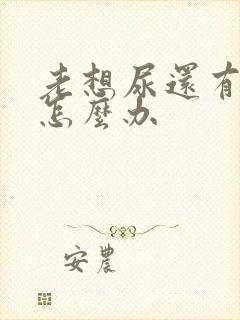 老想尿還有
怎麼办
安農